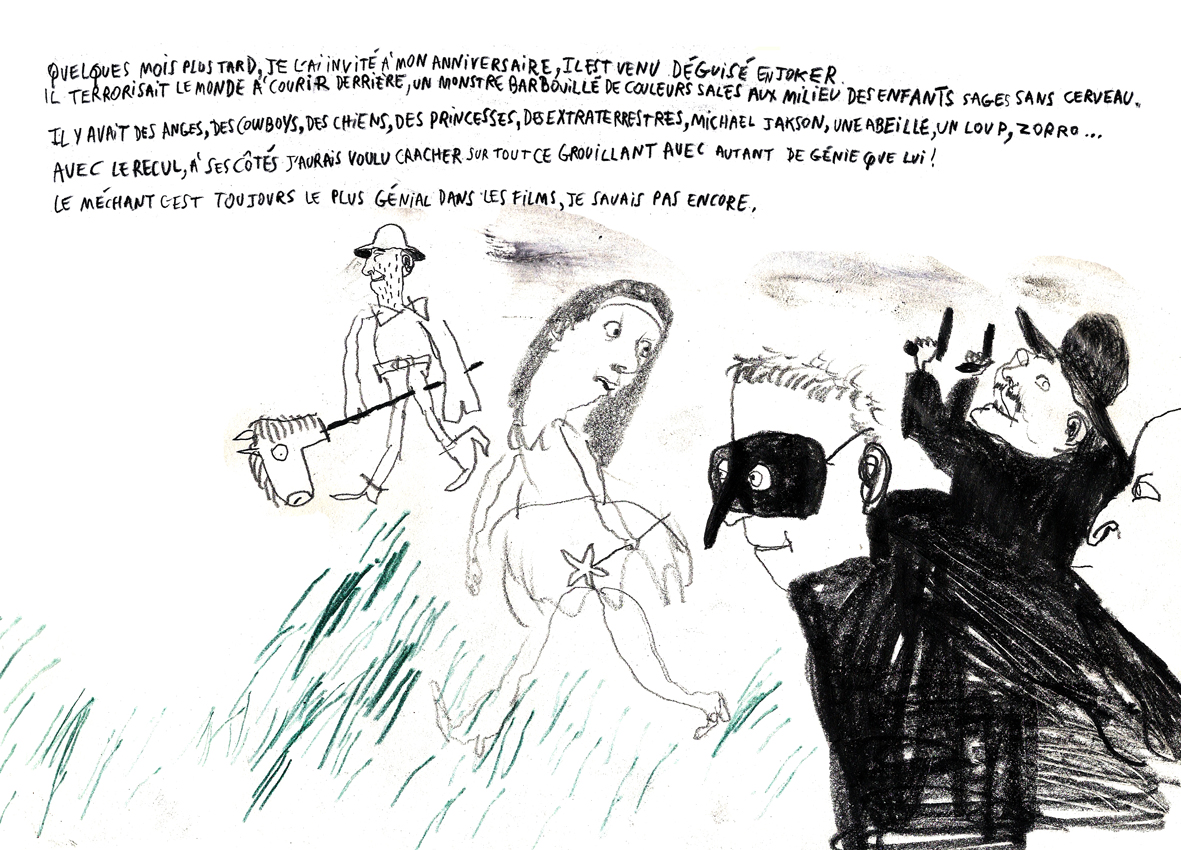 QUELQUES MOIS PLUS TARD, JE L'AI INVITÉ À MON ANNIVERSAIRE, IL EST VENU DÉGUISÉ EN JOKER.
IL TERRORISAIT LE MONDE À COURIR DERRIÈRE, UN MONSTRE BARBOUILLÉ DE COULEURS SALES AUX MILIEU DES ENFANTS SAGES SANS CERVEAU.
IL Y AVAIT DES ANGES, DES COWBOYS, DES CHIENS, DES PRINCESSES, DES EXTRATERRESTRES, MICHAEL JAKSON, UNE ABEILLE, UN LOUP, ZORRO...
AVEC LE RECUL, À SES CÔTÉS J'AURAIS VOULU CRACHER SUR TOUT CE GROUILLANT AVEC AUTANT DE GÉNIE QUE LUI !
LE MÉCHANT C'EST TOUJOURS LE PLUS GÉNIAL DANS LES FILMS, JE SAVAIS PAS ENCORE.